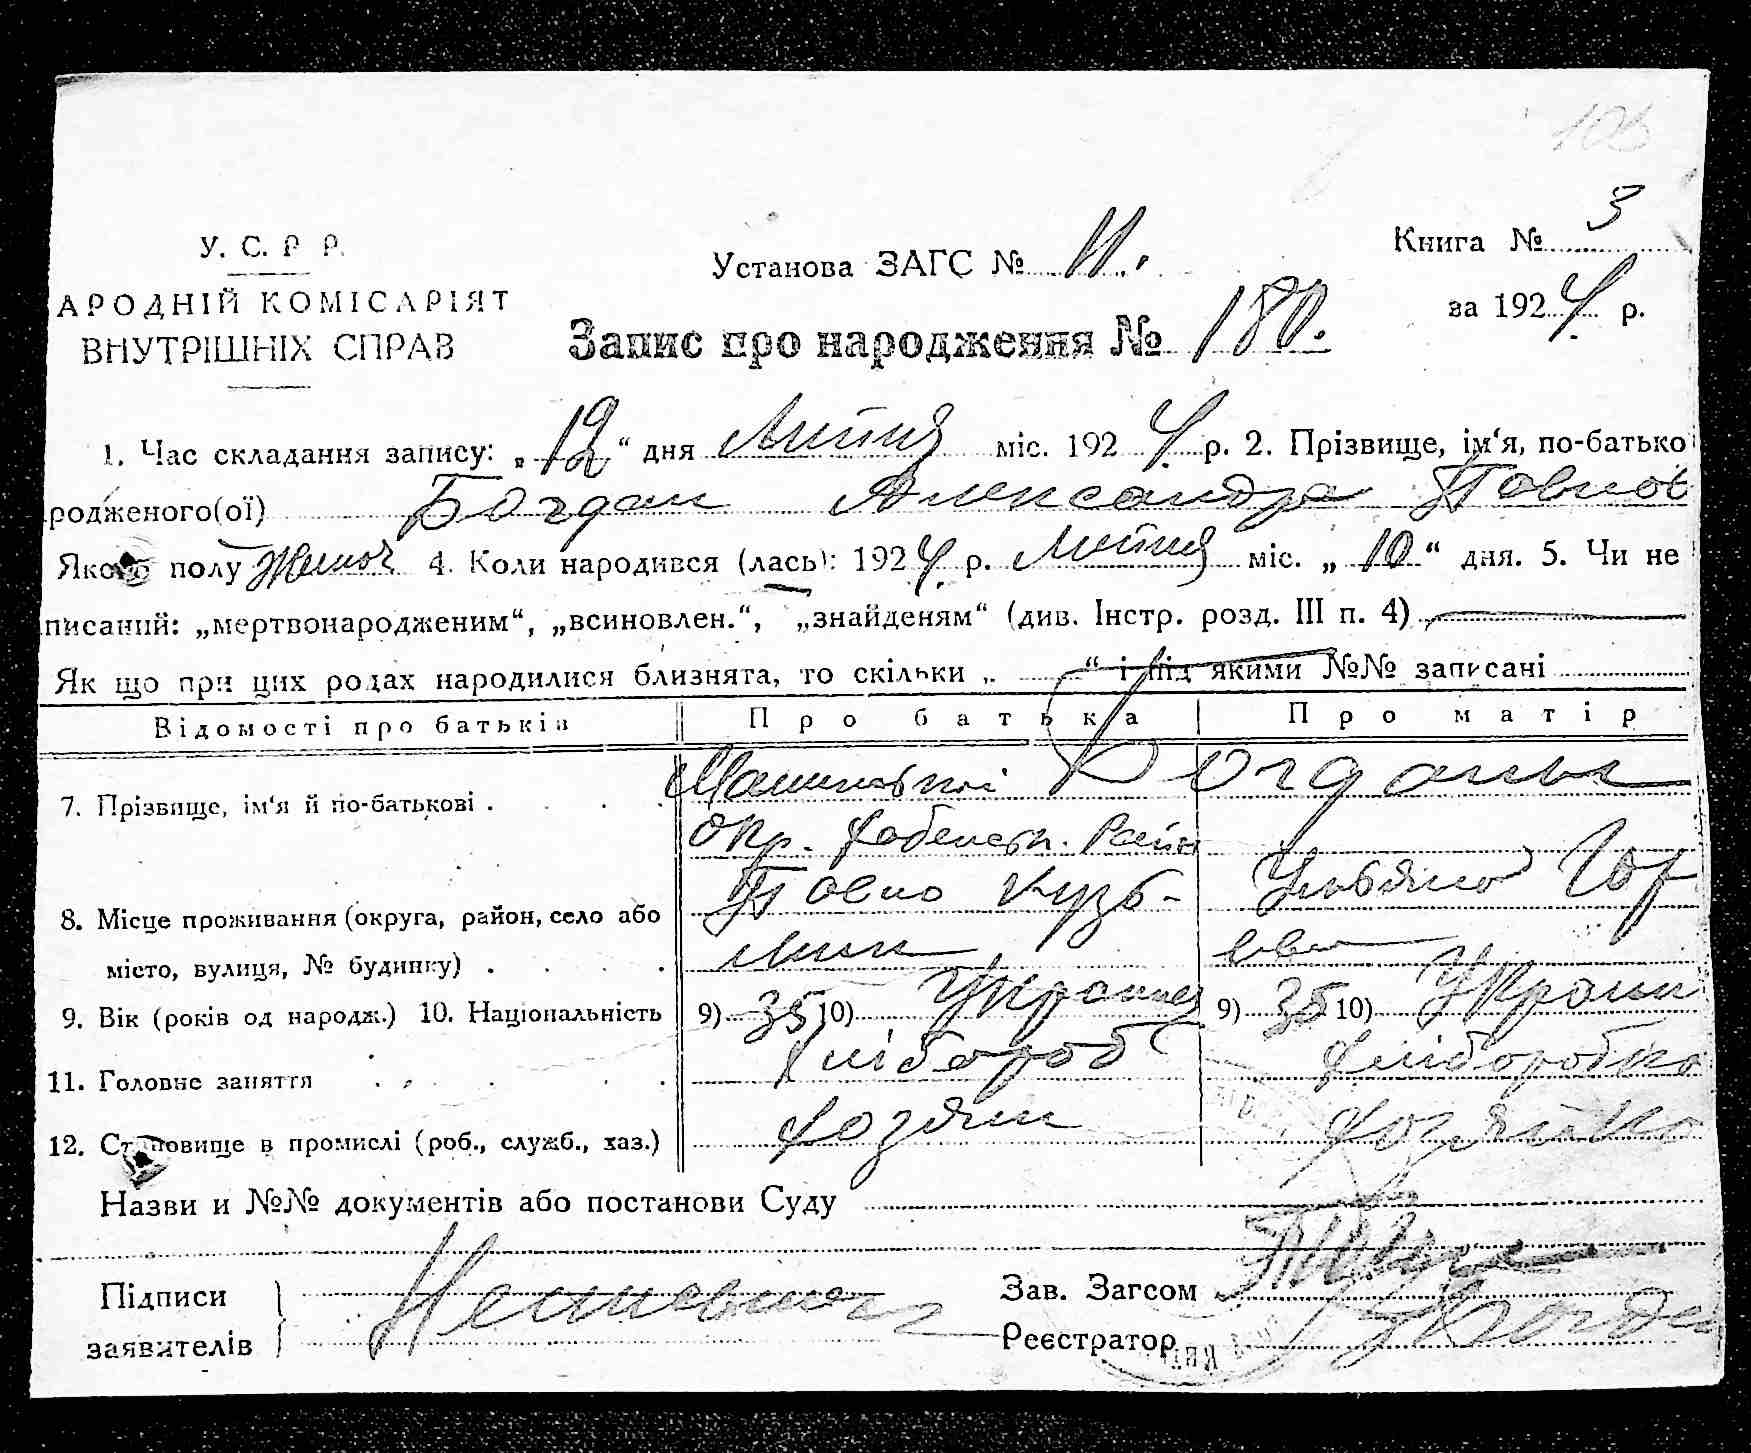 103
У. С. Р Р.
Установа ЗАГС № 11.
Книга № 3
АРОДНІЙ КОМІСАРІЯТ
за 1924 р.
ВНУТРІШНІХ СПРАВ
Запис про народження № 180.
1. Час складання запису: „12“ дня Липня міс. 1924 р. 2. Прізвище, ім‘я, по-батько
родженого(ої) Богдан Александра Павлов
Якого полу женоч 4. Коли народився (лась): 1924 р. Липня міс. „10“ дня. 5. Чи не
писаний: „мертвонародженим“, „всиновлен.“, „знайденям“ (див. Інстр. розд. III п. 4)
Як що при цих родах народилися близнята, то скільки „ “ і під якими №№ записані
Відомості про батьків Про батька Про матір
7. Прізвище, ім‘я й по-батькові . . . . Богданы
Окр. Райн
8. Місце проживання (округа, район, село або Павло Кузь- Ульяна
місто, вулиця, № будинку) . . . . мич
9. Вік (років од народж.) 10. Національність 9) 35 10) Украинец 9) 35 10) Украин
11. Головне заняття . . . . . Хлібороб Хліборобка
12. Становище в промислі (роб., служб., хаз.) Хозяин Хозяйка
Назви и №№ документів або постанови Суду
Підписи
заявителів
Зав. Загсом
Реєстратор